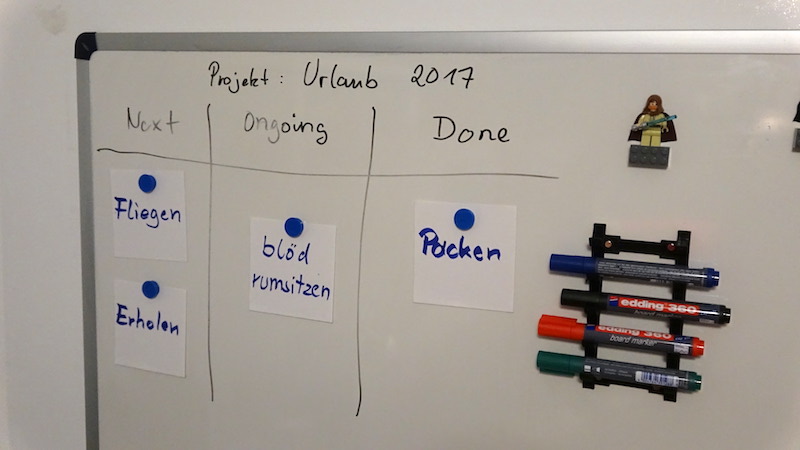 Projekt: Urlaub 2017
Next Ongoing Done
Fliegen
blöd
rumsitzen
Packen
Erholen
edding 360
board marker
edding 360
board marker